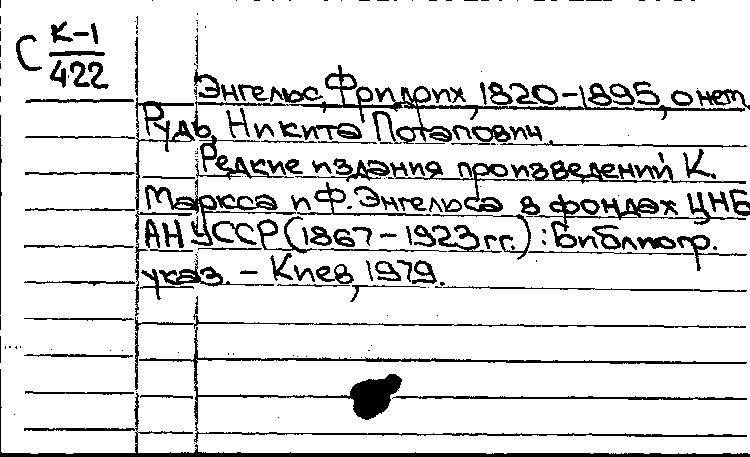 С К-1
422
Энгельс, Фридрих, 1820-1895, о нем.
Рудь, Никита Потапович.
Редкие издания произведений К.
Маркса и Ф. Энгельса в фондах ЦНБ
АН УССР (1867-1923 гг.) : Библиогр.
указ. - Киев, 1979.